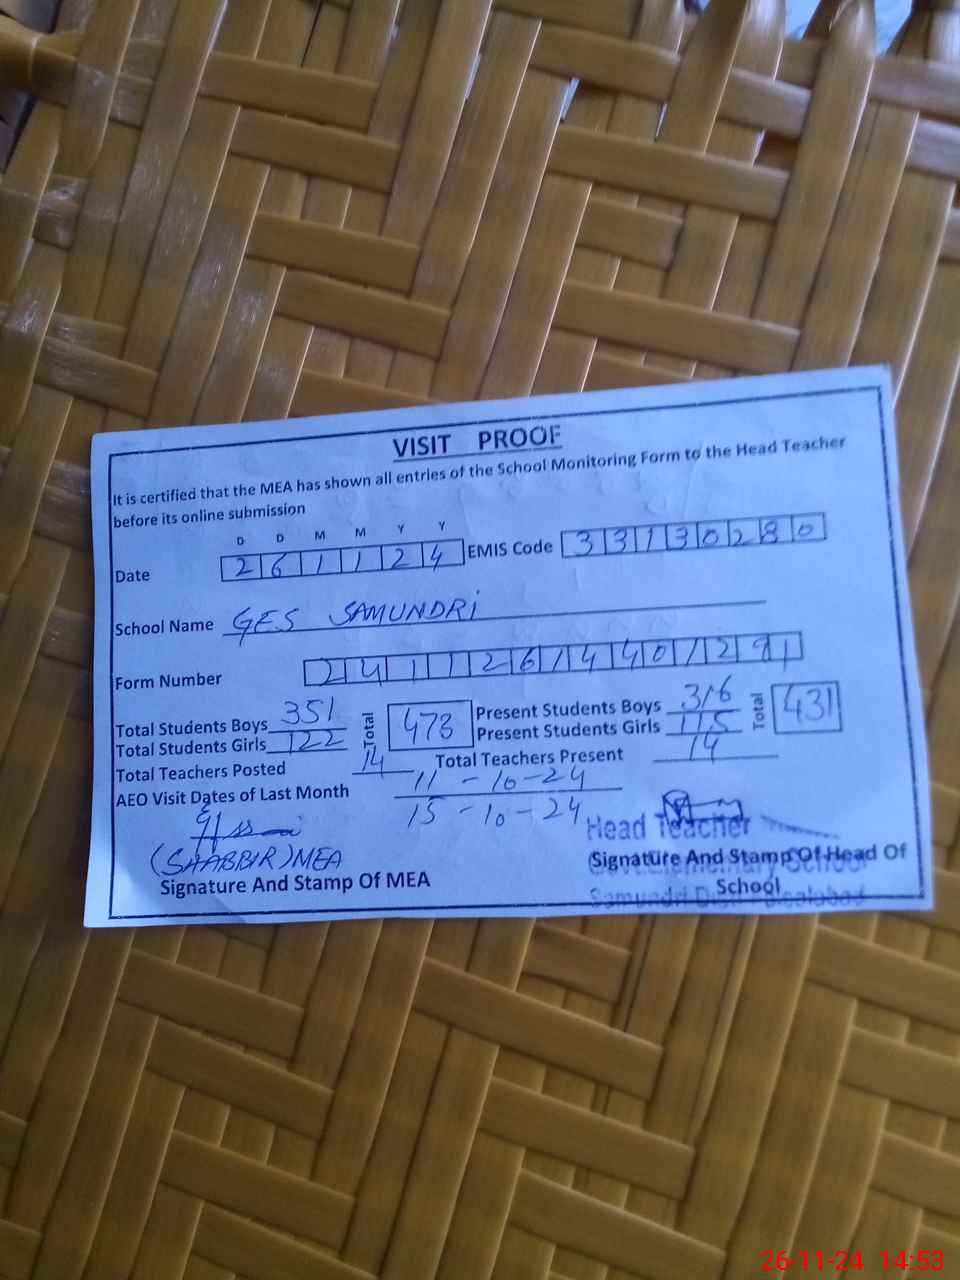 VISIT PROOF
It is certified that the MEA has shown all entries of the School Monitoring Form to the Head Teacher
before its online submission
D D M M Y Y
Date 2 6 1 1 2 4 EMIS Code 3 3 1 3 0 2 8 0
School Name GES SAMUNDRI
Form Number 2 4 1 1 2 6 1 4 4 0 1 2 9 1
Total Students Boys 351 Total 473 Present Students Boys 316 Total 431
Total Students Girls 122 Present Students Girls 115
Total Teachers Posted 14 Total Teachers Present 14
AEO Visit Dates of Last Month 11-10-24
15-10-24
Head Teacher
(SHABBIR) MEA
Signature And Stamp Of MEA
Signature And Stamp Of Head Of
School
Govt. Elementary School
Samundri Distt Faisalabad
26-11-24 14:53